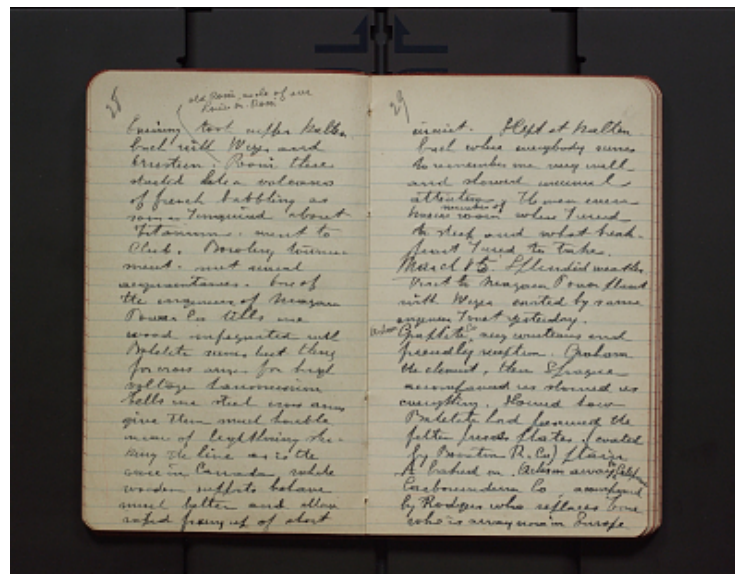 28
old Rossi, uncle of our
Louis M. Rossi
Evening took supper Kaltenbach
bach with Wizes and
Rossi there
started like a volcano
of french babbling as
soon as I inquired about
Titanium. went to
Club. Bowling tourna-
ment. met several
acquaintances. One of
the engineers of Niagara
Power Co tells me
wood impregnated with
Bakelite seems best thing
for cross arms for high
voltage transmission
tells me steel cross arms
give them much trouble
means of lightning stri-
king the line as is the
case in Canada, while
wooden supports behave
much better and allow
rapid fixing up of short
29
circuit. Slept at Kalten
bach where everybody seems
to remember me very well
and showed unusual
attention
number of
room where I used
to sleep and what break-
fast I used to take.
March 15. Splendid weather.
Visit to Niagara Power plant
with Wizes invited by same
engineer I met yesterday.
Acheson Graphite Co very courteous and
friendly reception. Graham
the chemist, then Sprague
accompanied us showed us
everything. Showed how
Bakelite had favored the
filter press plates. (coated
by Boonton R. Co) stain
A baked on. Acheson away to California
Carborundum Co, accompanied
by Rodgers who replaces Tone
who is away now in Europe